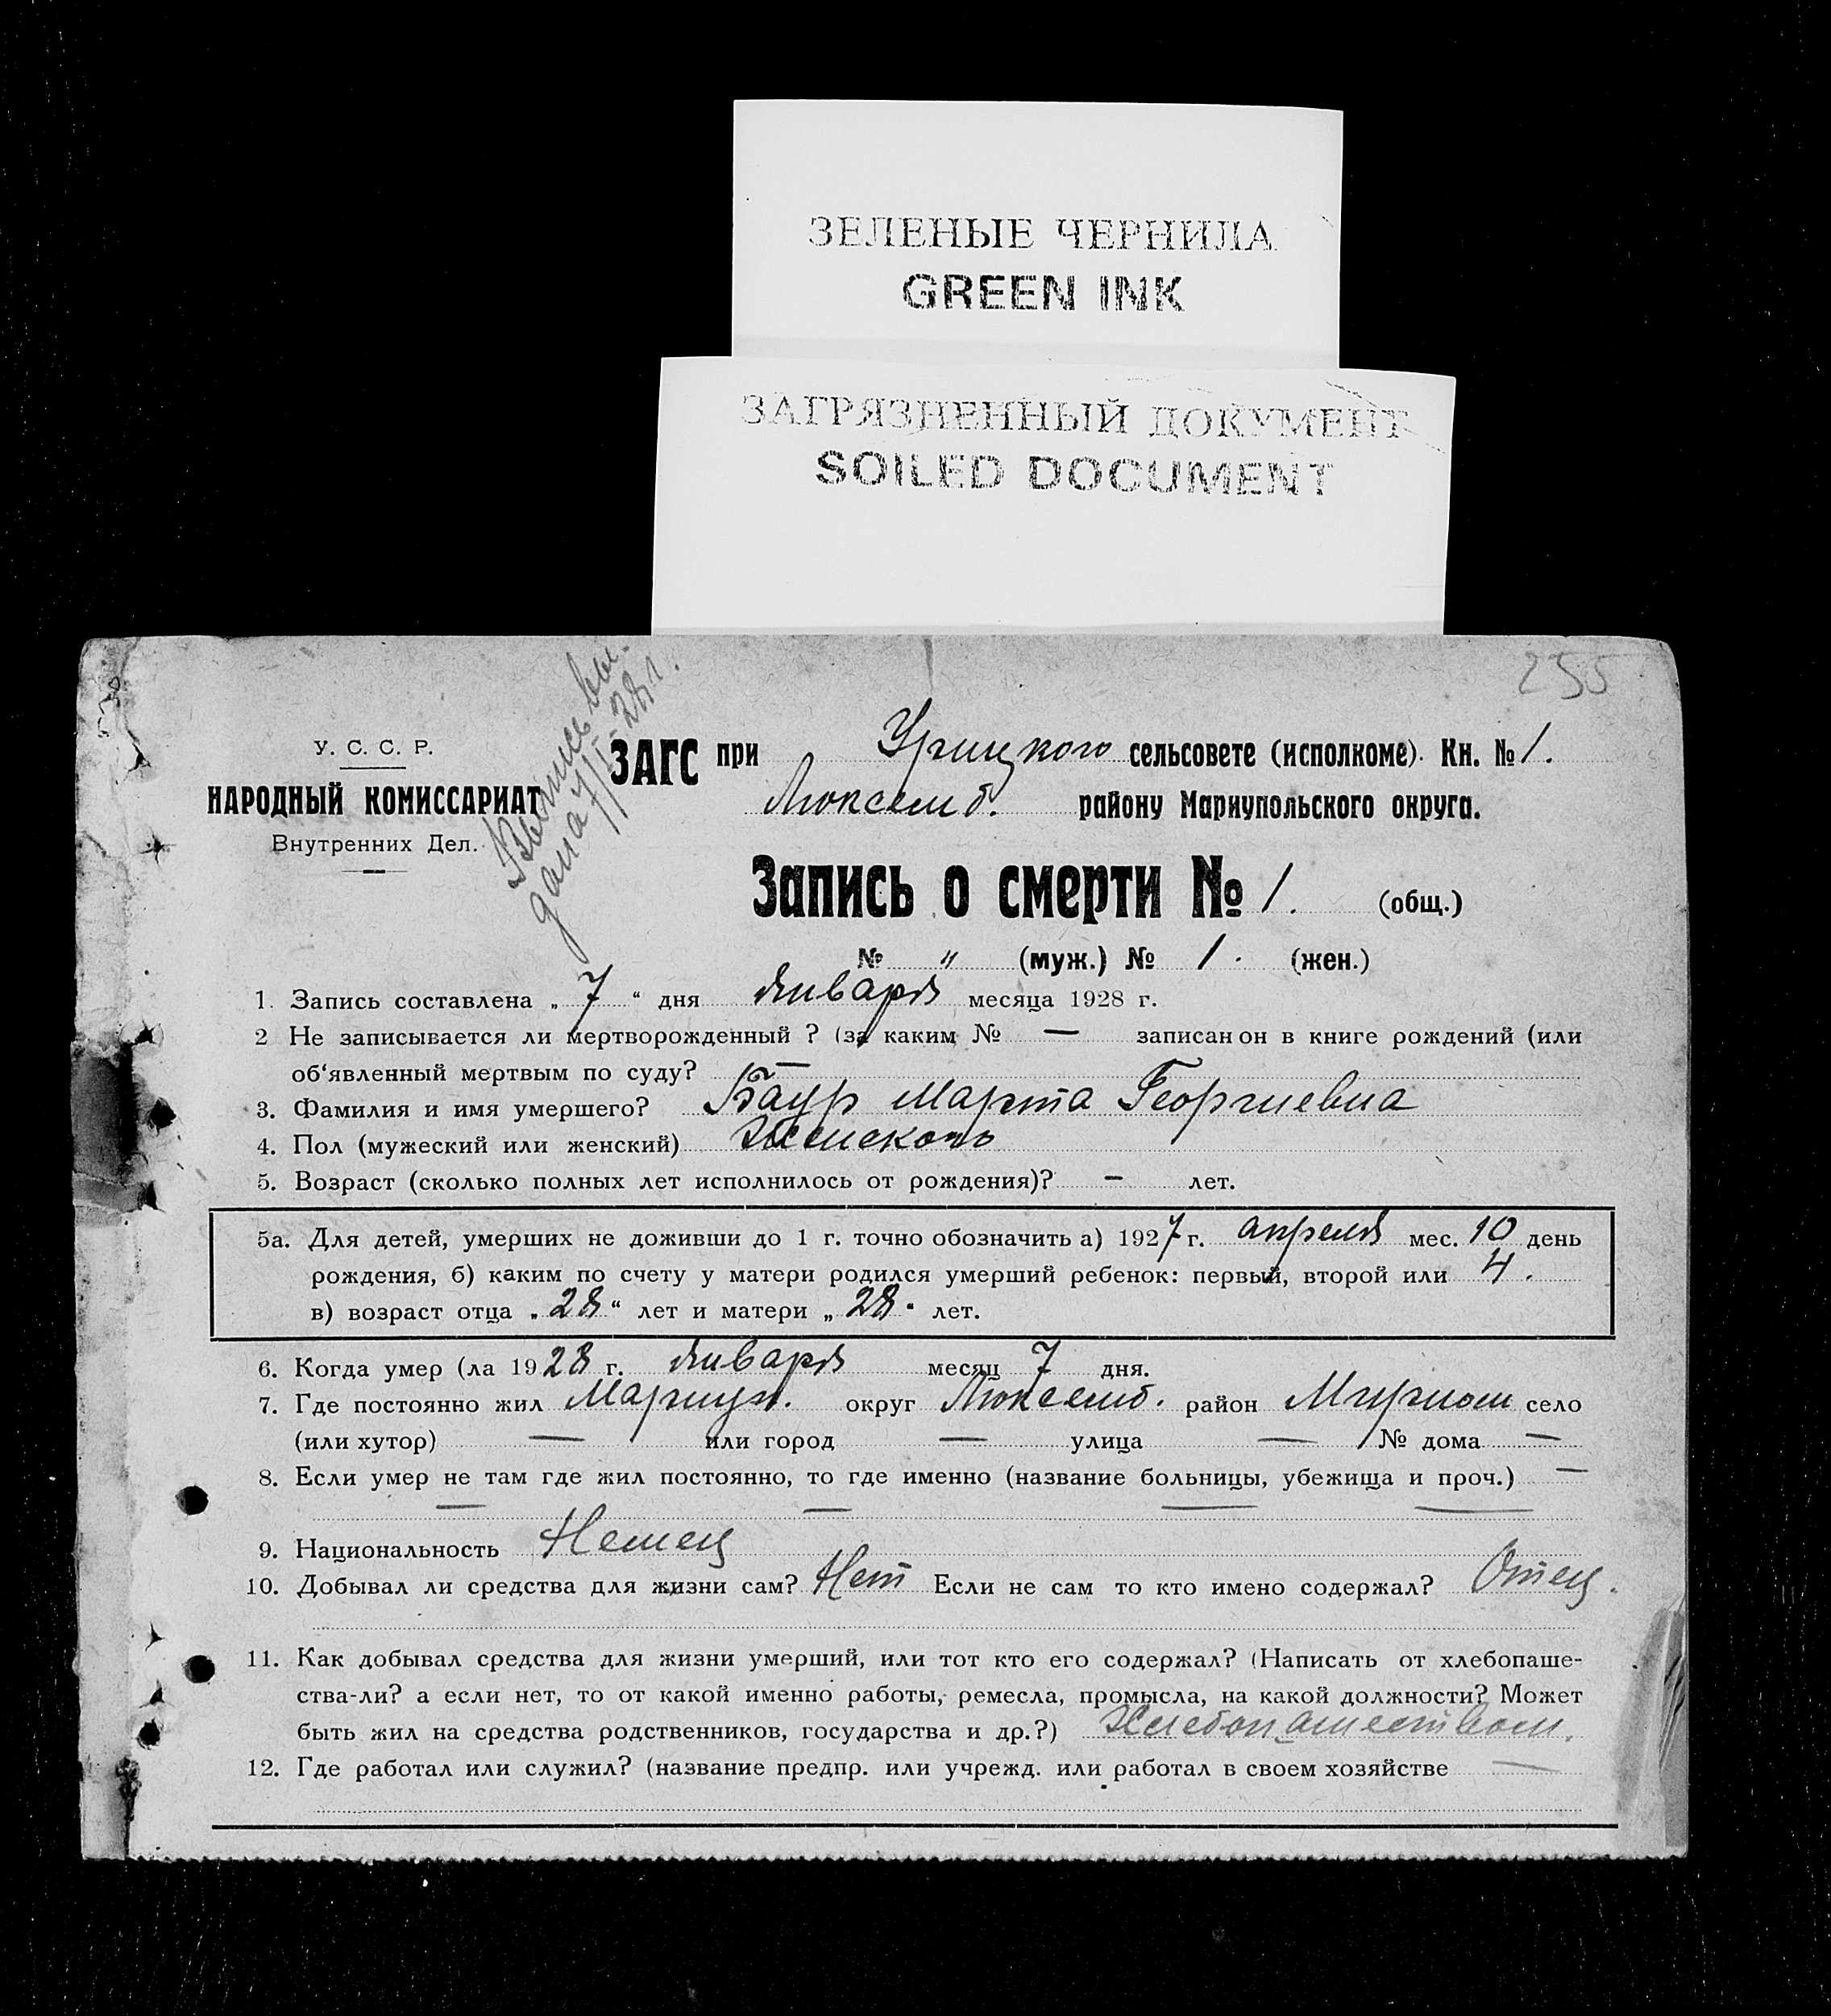 ЗЕЛЕНЫЕ ЧЕРНИЛА
GREEN INK
ЗАГРЯЗНЕННЫЙ ДОКУМЕНТ
SOILED DOCUMENT
255
Выпись вы-
дана 7/I-28 г.
У. С. С. Р.
НАРОДНЫЙ КОМИССАРИАТ
Внутренних Дел.
ЗАГС при Урицкого сельсовете (исполкоме). Кн. № 1.
Люксемб. району Мариупольского округа.
Запись о смерти № 1. (общ.)
№ " (муж.) № 1. (жен.)
1. Запись составлена „7“ дня Января месяца 1928 г.
2 Не записывается ли мертворожденный ? (за каким № — записан он в книге рождений (или
об‘явленный мертвым по суду? —
3. Фамилия и имя умершего? Баур Марта Георгиевна
4. Пол (мужеский или женский) Женского
5. Возраст (сколько полных лет исполнилось от рождения)? — лет.
5а. Для детей, умерших не доживши до 1 г. точно обозначить а) 1927 г. апреля мес. 10 день
рождения, б) каким по счету у матери родился умерший ребенок: первый, второй или 4.
в) возраст отца „28“ лет и матери „28“ лет.
6. Когда умер (ла 1928 г. Января месяц 7 дня.
7. Где постоянно жил Мариуп. округ Люксемб. район село
(или хутор) — или город — улица — № дома —
8. Если умер не там где жил постоянно, то где именно (название больницы, убежища и проч.) —
— — — —
9. Национальность Немец
10. Добывал ли средства для жизни сам? Нет Если не сам то кто имено содержал? Отец.
11. Как добывал средства для жизни умерший, или тот кто его содержал? (Написать от хлебопаше-
ства-ли? а если нет, то от какой именно работы, ремесла, промысла, на какой должности? Может
быть жил на средства родственников, государства и др.?) Хлебопашеством.
12. Где работал или служил? (название предпр. или учрежд. или работал в своем хозяйстве —